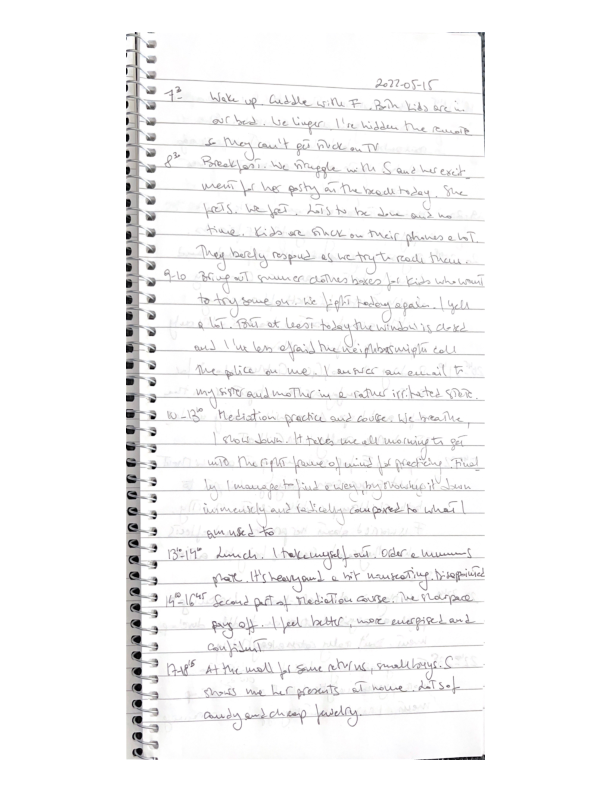 2022-05-15
7³⁰ Wake up. Cuddle with F. Both kids are in
our bed. We linger. I've hidden the remote
so they can't get stuck on TV
8³⁰ Breakfast. We struggle with S and her excit-
ment for her party at the beach today. She
frets. We fret. Lots to be done and no
time. Kids are stuck on their phones a lot.
They barely respond as we try to reach them.
9-10 Bring out summer clothes boxes for kids who want
to try some on. We fight today again. I yell
a lot. But at least today the window is closed
and I'm less afraid the neighbors might call
the police on me. I answer an email to
my sister and mother in a rather irritated state.
10-13⁰⁰ Mediation practice and course. We breathe,
I slow down. It takes me all morning to get
into the right frame of mind for practicing. Final-
ly I manage to find a way, by slowing it down
immensely and radically compared to what I
am used to
13⁰⁰-14⁰⁰ Lunch. I take myself out. Order a hummus
plate. It's heavy and a bit nauseating. Disappointed
14⁰⁰-16⁴⁵ Second part of Mediation course. The slow pace
pays off. I feel better, more energised and
confident
17-18¹⁵ At the mall for some returns, small buys. S
shows me her presents at home. Lots of
candy and cheap jewelry.